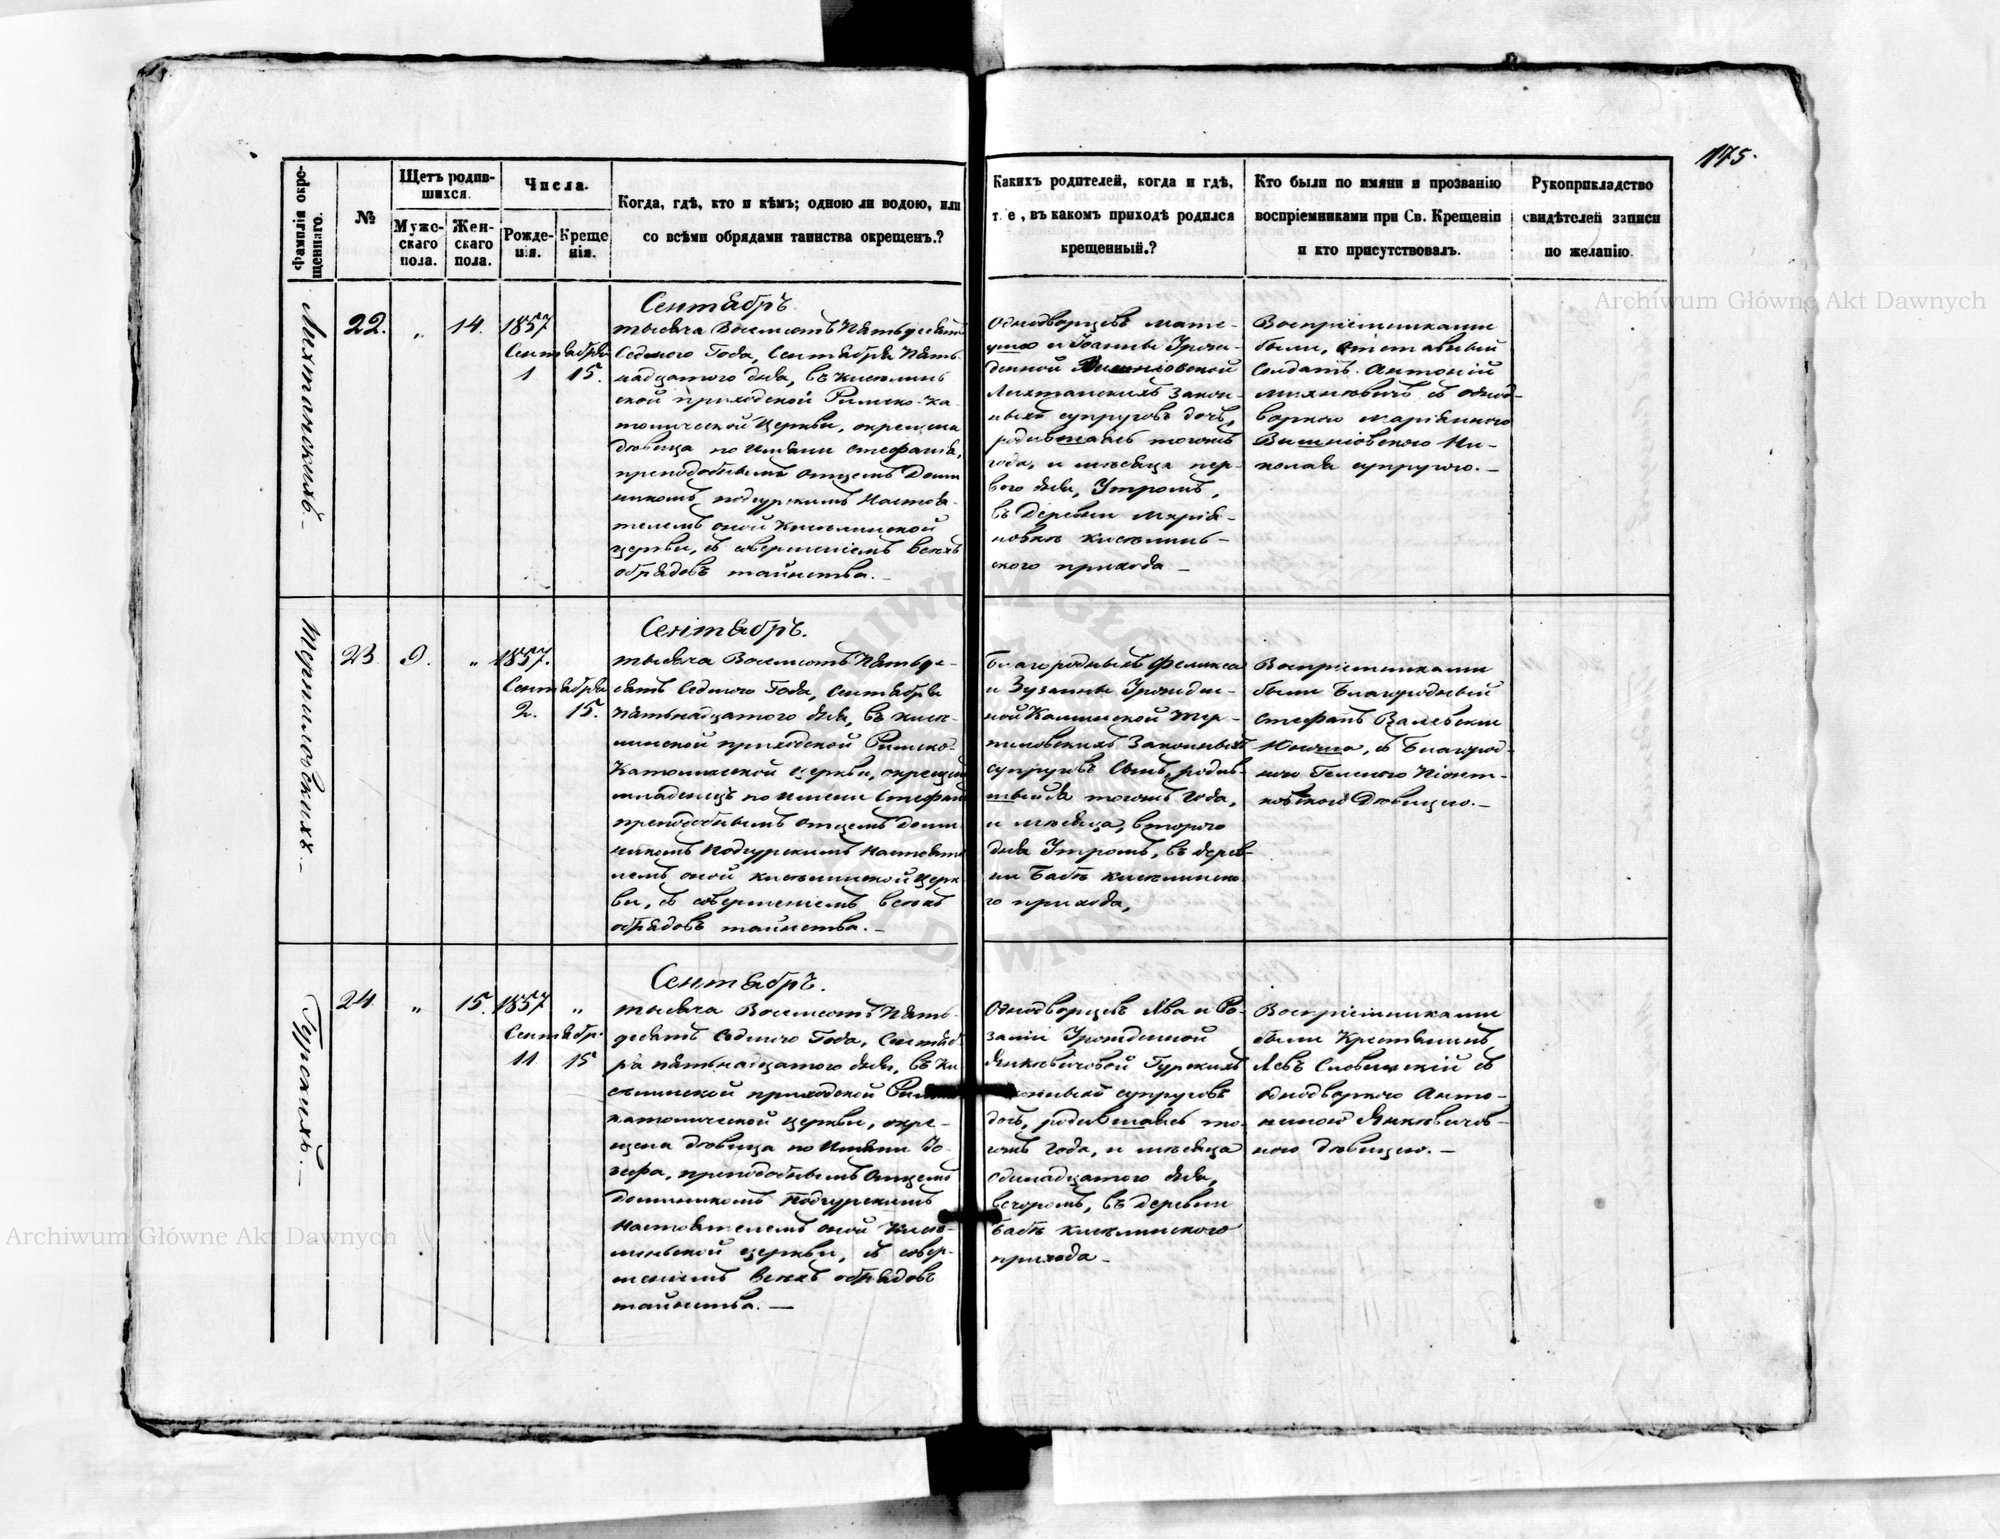 175.
Фамилія окре-
щеннаго.
№
Щетъ родив-
шихся.
Мужс-
скаго
пола.
Жен-
скаго
пола.
Числа.
Рожде-
нія.
Креще
нія.
Когда, гдѣ, кто и кѣмъ; одною ли водою, или
со всѣми обрядами таинства окрещенъ.?
Какихъ родителей, когда и гдѣ,
т. е, въ какомъ приходѣ родился
крещенный.?
Кто были по имяни и прозванію
воспріемниками при Св. Крещеніи
и кто присутствовалъ.
Рукоприкладство
свидѣтелей записи
по желанію.
Лихтанскихъ
22.
„
14.
1857
Сентября
1
15.
Сентябрь.
тысяча Восемсотъ Пятьдесятъ
Седмого Года, Сентября Пят-
надцатого дня, въ Кисѣлин-
ской приходской Римско-Ка-
толической Церкви, окрещена
дѣвица по Имяни Стефанія,
преподобнымъ Отцемъ Доми
никомъ Подгурскимъ Настоя-
телемъ оной Кисѣлинской
церкви, съ совершеніемъ всѣхъ
обрядовъ таинства.
Однодворцевъ Мате-
уша и Іоанны Урож-
денной Вишніовской
Лихтанскихъ Закон-
ныхъ супруговъ дочь,
родившаясь тогожъ
года, и мѣсяца пер-
вого дня, Утромъ,
въ Деревни Марія-
новкѣ Кисѣлинь-
ского прихода
Воспріемниками
были, Отставный
Солдатъ Антоній
съ однод-
воркою Маріянною
Вишніовскою Ни-
колая супругою.
Терпиловскихъ
23.
9.
„
1857.
Сентября
2.
15.
Сентябрь.
тысяча Восемсотъ Пятьде-
сятъ Седмого Года, Сентября
Пятьнадцатого дня, въ Кисѣ-
линской приходской Римско-
Католической церкви, окрещенъ
младенецъ по имени Стефанъ
преподобнымъ отцемъ Доми
никомъ Подгурскимъ Настояте
лемъ оной Кисѣлинской Церк
ви, съ совершеніемъ всѣхъ
обрядовъ таинства.
Благородныхъ Феликса
и Зузанны Урожден-
ной Калинской Тер-
пиловскихъ Законныхъ
супруговъ Сынъ, родив-
шыйся тогожъ Года,
и мѣсяца, второго
дня Утромъ, въ дерев-
ни Бабѣ Кисѣлинско-
го прихода,
Воспріемниками
были Благородный
Стефанъ Валевскій
Юноша, съ Благород-
ною Геленою Піонт-
ковскою Дѣвицею.
Гурскихъ.
24.
„
15.
1857
„
Сентябр.
11.
15
Сентябрь.
тысяча Восемсотъ Пять-
десятъ Седмого Года, Сентяб
ря пятьнадцатого дня, въ Ки
сѣлинской приходской Римско
католической церкви, окре-
щена дѣвица по Имяни Іо-
зефа, преподобнымъ Отцемъ
Доминикомъ Подгурскимъ
Настоятелемъ оной Кисѣ-
линьской церкви, съ совер-
шеніемъ всѣхъ обрядовъ
таинства.
Однодворцевъ Лва и Ро-
заліи Урожденной
Янкѣвичовой Гурскихъ
законныхъ супруговъ
дочь, родившаясь то-
гожъ Года, и мѣсяца
одинадцатого дня,
вечоромъ, въ деревни
Бабѣ Кисѣлинского
прихода
Воспріемниками
были Крестянинъ
Левъ съ
однодворкою Анто-
ниною Янкѣвичов-
ною Дѣвицею.
Archiwum Główne Akt Dawnych
Archiwum Główne Akt Dawnych